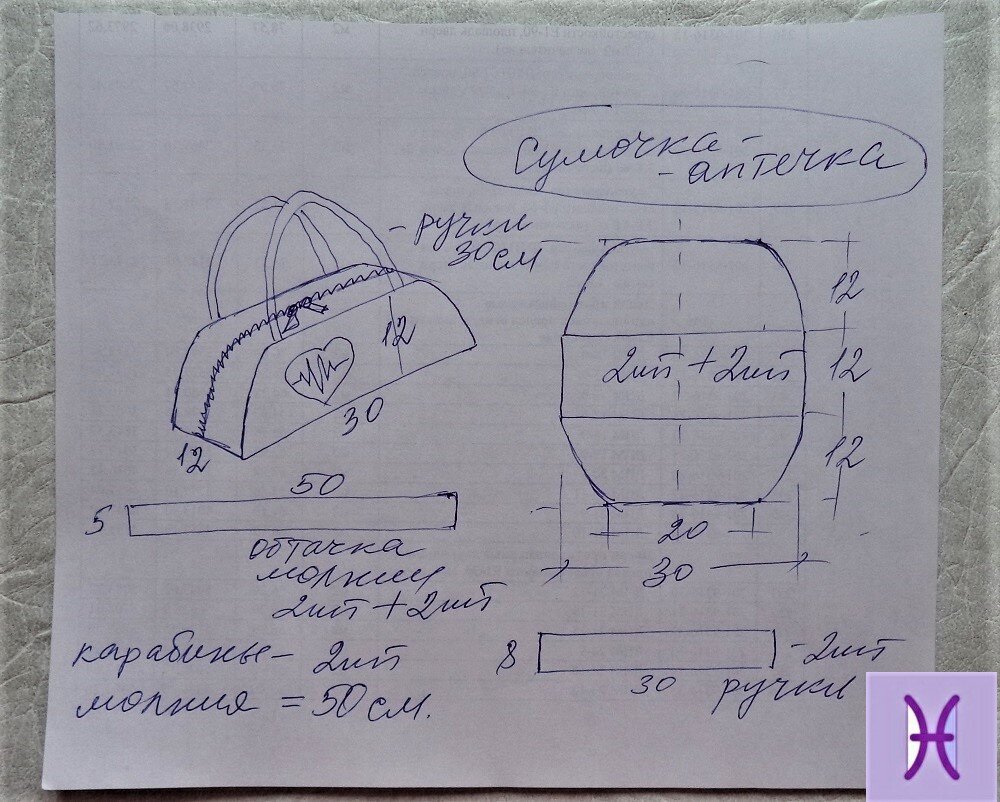 Сумочка-
-аптечка
- ручки
30 см
12
30
12
12
2шт + 2шт
12
12
20
30
50
5
обтачка
молнии
2шт + 2шт
карабины - 2шт
молния = 50 см.
8
30
- 2шт
ручки